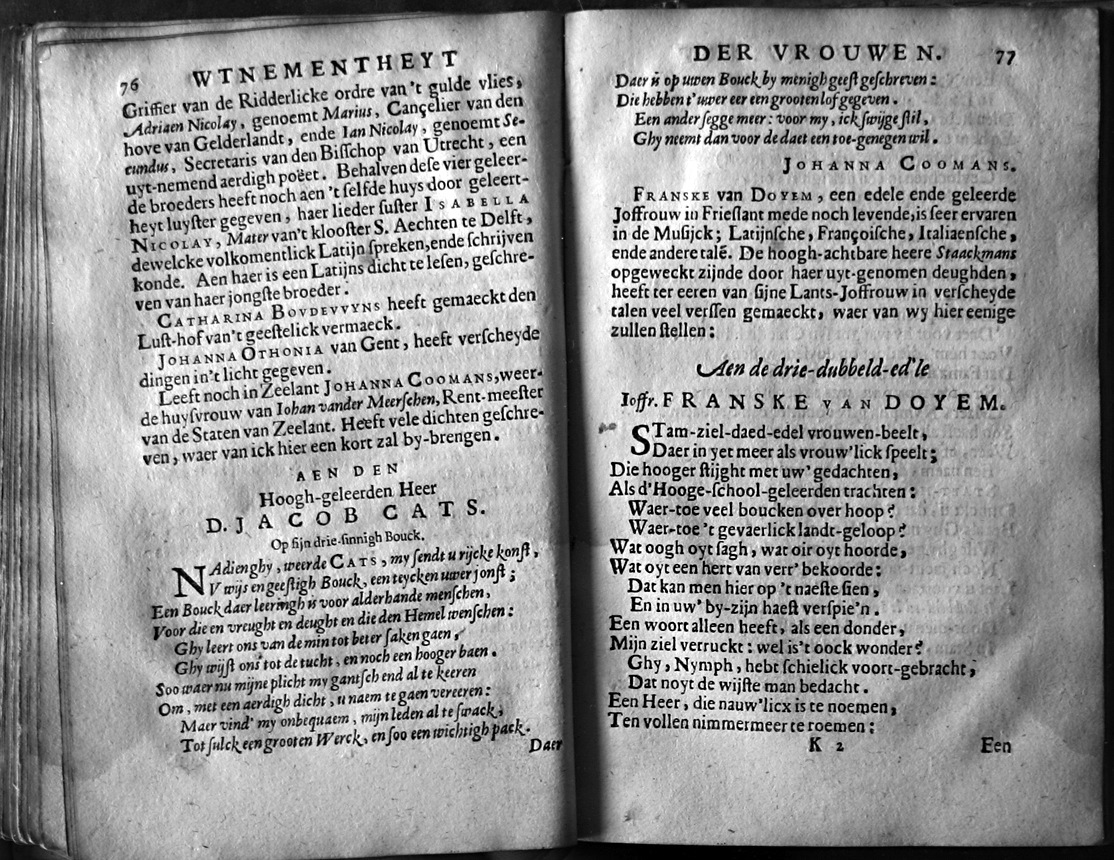 76 WTNEMENTHEYT
Griffier van de Ridderlicke ordre van't gulde vlies,
Adriaen Nicolay, genoemt Marius, Cançelier van den
hove van Gelderlandt, ende Ian Nicolay, genoemt Se-
cundus, Secretaris van den Bisschop van Utrecht, een
uyt-nemend aerdigh poëet. Behalven dese vier geleer-
de broeders heeft noch aen 't selfde huys door geleert-
heyt luyster gegeven, haer lieder suster ISABELLA
NICOLAY, Mater van't klooster S. Aechten te Delft,
dewelcke volkomentlick Latijn spreken, ende schrijven
konde. Aen haer is een Latijns dicht te lesen, geschre-
ven van haer jongste broeder.
CATHARINA BOVDEVVYNS heeft gemaeckt den
Lust-hof van't geestelick vermaeck.
JOHANNA OTHONIA van Gent, heeft verscheyde
dingen in't licht gegeven.
Leeft noch in Zeelant JOHANNA COOMANS, weer-
de huysvrouw van Iohan vander Meerschen, Rent-meester
van de Staten van Zeelant. Heeft vele dichten geschre-
ven, waer van ick hier een kort zal by-brengen.
AEN DEN
Hoogh-geleerden Heer
D. JACOB CATS.
Op sijn drie-sinnigh Bouck.
NAdien ghy, weerde CATS, my sendt u rijcke konst,
V wijs en geestigh Bouck, een teycken uwer jonst;
Een Bouck daer leeringh is voor alderhande menschen,
Voor die en vreught en deught en die den Hemel wenschen:
Ghy leert ons van de min tot beter saken gaen,
Ghy wijst ons tot de tucht, en noch een hooger baen.
Soo waer nu mijne plicht my gantsch end al te keeren
Om, met een aerdigh dicht, u naem te gaen vereeren:
Maer vind' my onbequaem, mijn leden al te swack,
Tot sulck een grooten Werck, en soo een wichtigh pack.
Daer
DER VROUWEN. 77
Daer is op uwen Bouck by menigh geest geschreven:
Die hebben t'uwer eer een grooten lof gegeven.
Een ander segge meer: voor my, ick swijge stil,
Ghy neemt dan voor de daet een toe-genegen wil.
JOHANNA COOMANS.
FRANSKE van DOYEM, een edele ende geleerde
Joffrouw in Frieslant mede noch levende, is seer ervaren
in de Musijck; Latijnsche, Françoische, Italiaensche,
ende andere talē. De hoogh-achtbare heere Staackmans
opgeweckt zijnde door haer uyt-genomen deughden,
heeft ter eeren van sijne Lants-Joffrouw in verscheyde
talen veel verssen gemaeckt, waer van wy hier eenige
zullen stellen:
Aen de drie-dubbeld-ed'le
Ioffr. FRANSKE VAN DOYEM.
STam-ziel-daed-edel vrouwen-beelt,
Daer in yet meer als vrouw'lick speelt;
Die hooger stijght met uw' gedachten,
Als d'Hooge-school-geleerden trachten:
Waer-toe veel boucken over hoop?
Waer-toe 't gevaerlick landt-geloop?
Wat oogh oyt sagh, wat oir oyt hoorde,
Wat oyt een hert van verr' bekoorde:
Dat kan men hier op 't naeste sien,
En in uw' by-zijn haest verspie'n.
Een woort alleen heeft, als een donder,
Mijn ziel verruckt: wel is't oock wonder?
Ghy, Nymph, hebt schielick voort-gebracht,
Dat noyt de wijste man bedacht.
Een Heer, die nauw'licx is te noemen,
Ten vollen nimmermeer te roemen:
K 2 Een